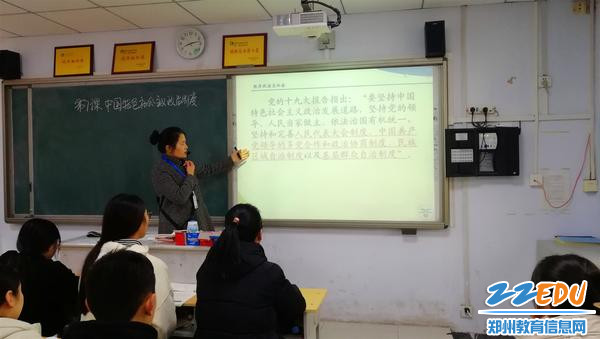 第1课 中国特色社会主义政治制度
党的十九大报告指出：“要坚持中国
特色社会主义政治发展道路，坚持党的领
导、人民当家做主、依法治国有机统一，
坚持和完善人民代表大会制度、中国共产
党领导的多党合作和政治协商制度、民族
区域自治制度以及基层群众自治制度”。
22EDU
郑州教育信息网